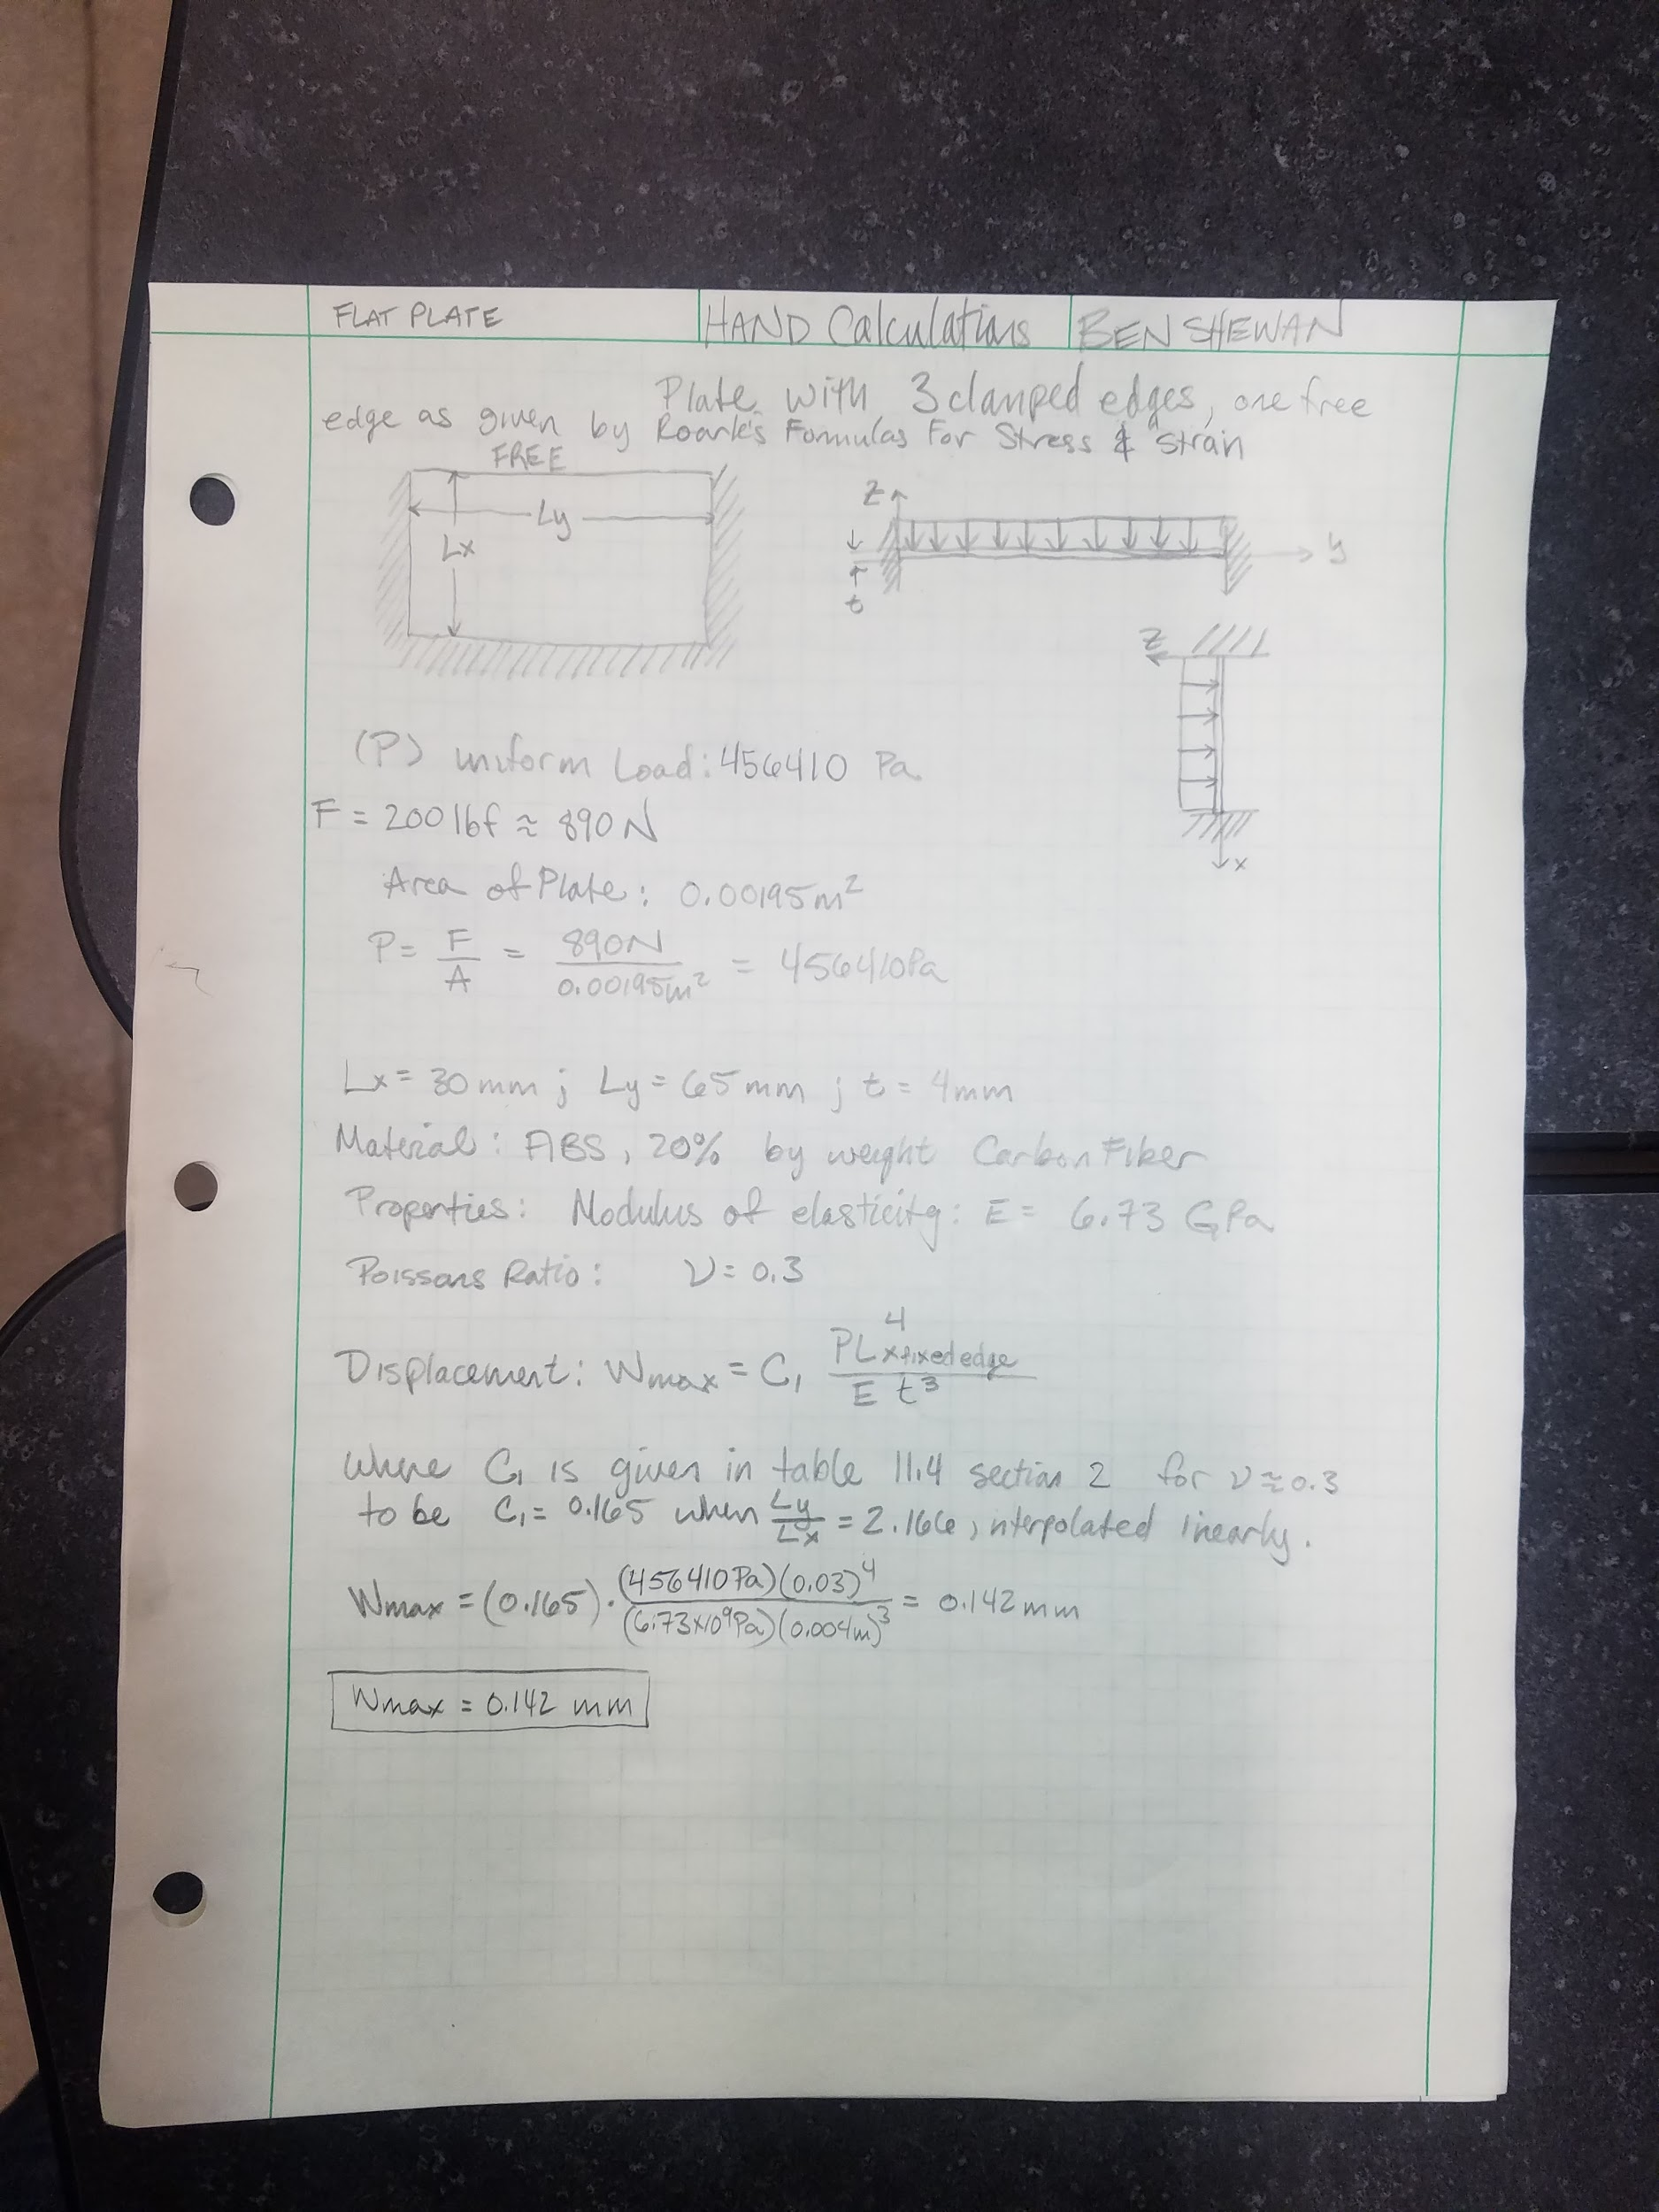 FLAT PLATE
HAND Calculations
BEN SHEWAN
Plate with 3 clamped edges, one free
edge as given by Roark's Formulas For Stress & Strain
FREE
Ly
Lx
z
y
t
z
x
(P) uniform Load: 456410 Pa
F = 200 lbf ≈ 890 N
Area of Plate: 0.00195m²
P = F/A = 890N/0.00195m² = 456410Pa
Lx = 30 mm ; Ly = 65 mm ; t = 4mm
Material: ABS, 20% by weight Carbon Fiber
Properties: Modulus of elasticity: E = 6.73 GPa
Poissons Ratio: ν = 0.3
Displacement: Wmax = C₁ PLx⁴fixed edge/E t³
Where C₁ is given in table 11.4 section 2 for ν ≈ 0.3
to be C₁ = 0.165 when Ly/Lx = 2.166, interpolated linearly.
Wmax = (0.165) · (456410 Pa)(0.03)⁴/(6.73x10⁹Pa)(0.004m)³ = 0.142 mm
Wmax = 0.142 mm